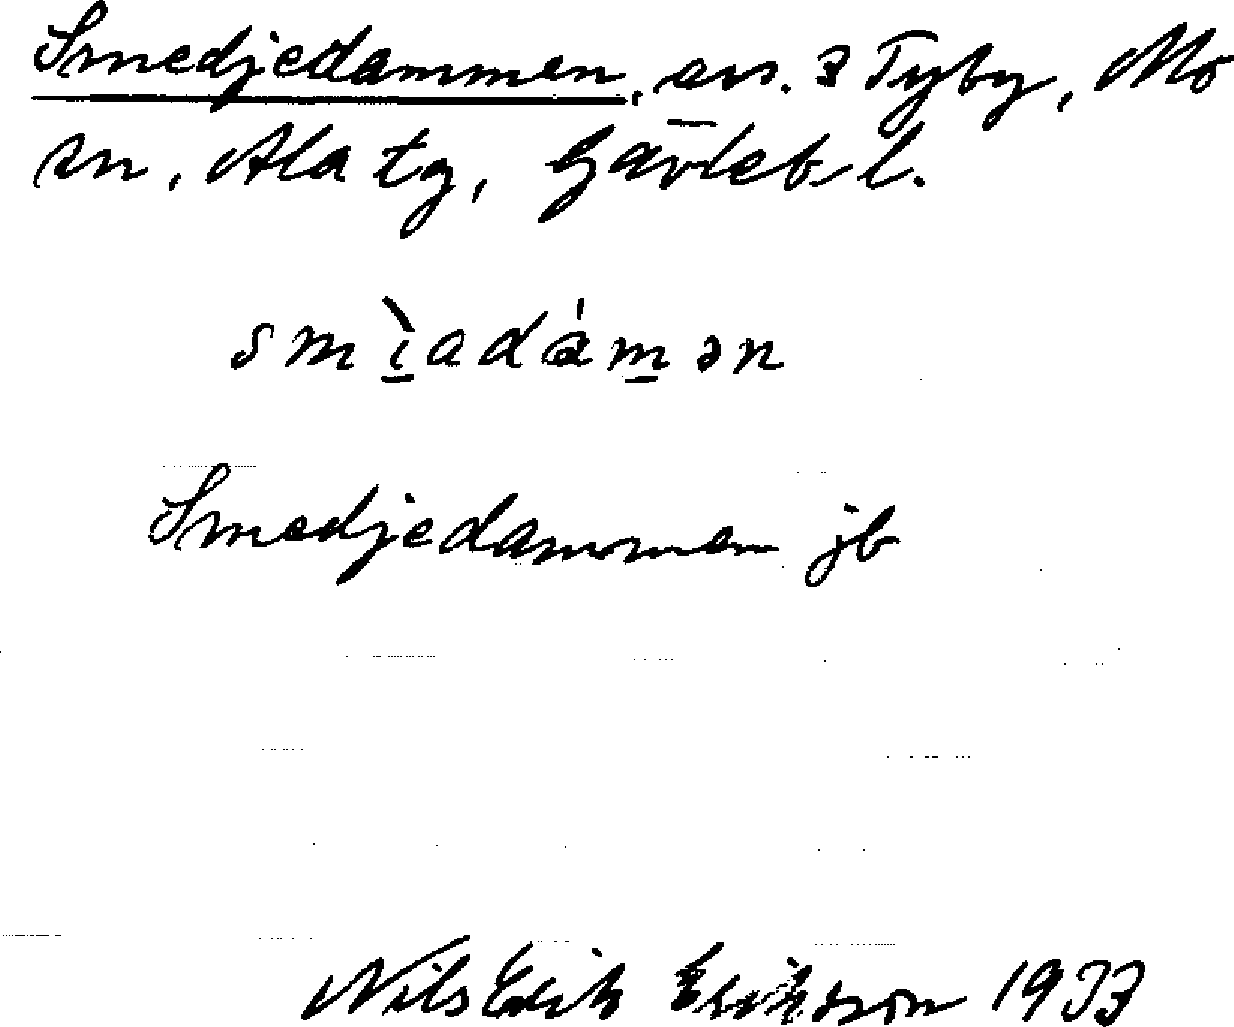 Smedjedammen, avs. 3 Tyby, Mo
sn, Ala tg, Gävleb l.
smì̱adám̱ən
Smedjedammen jb
Nils Erik Eriksson 1933